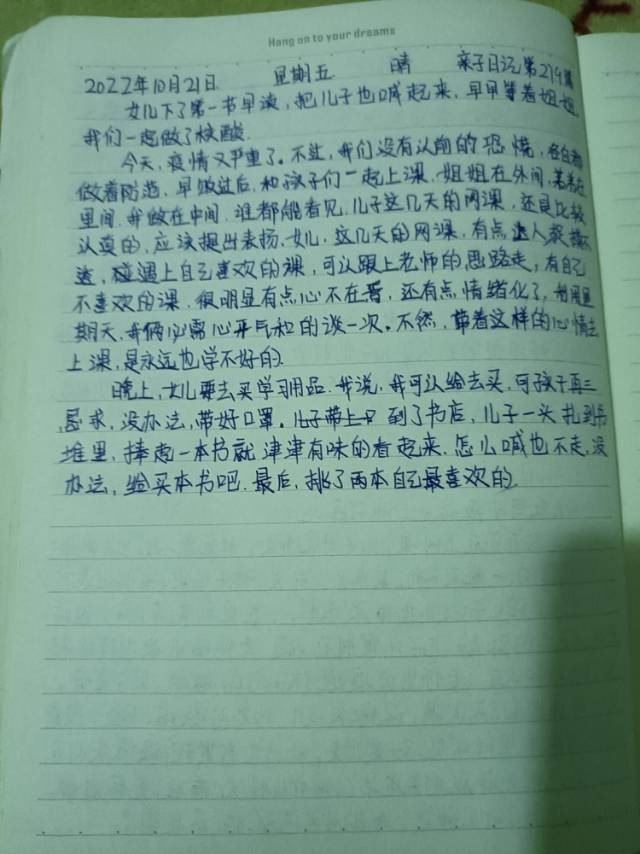 Hang on to your dreams
2022年10月21日 星期五 晴 亲子日记第219篇
女儿下了第一书早读,把儿子也喊起来,早早等着姐姐,
我们一起做了核酸.
今天,疫情又严重了。不过,我们没有以前的恐慌,各自都
做着防范,早做过后,和孩子们一起上课.姐姐在外间,弟弟在
里间,我做在中间,谁都能看见.儿子这几天的网课,还是比较
认真的,应该提出表扬.女儿,这几天的网课,有点
碰遇上自己喜欢的课,可以跟上老师的思路走,有自己
不喜欢的课,很明显有点心不在焉,还有点情绪化了,星
期天,我俩必需心平气和的谈一次.不然,带着这样的心情去
上课,是永远也学不好的.
晚上,女儿要去买学习用品.我说,我可以给去买.可孩子再三
恳求,没办法,带好口罩。到了书店,儿子一头扎到书
堆里,捧起一本书就津津有味的看起来,怎么喊也不走,没
办法,给买本书吧.最后,挑了两本自己最喜欢的.